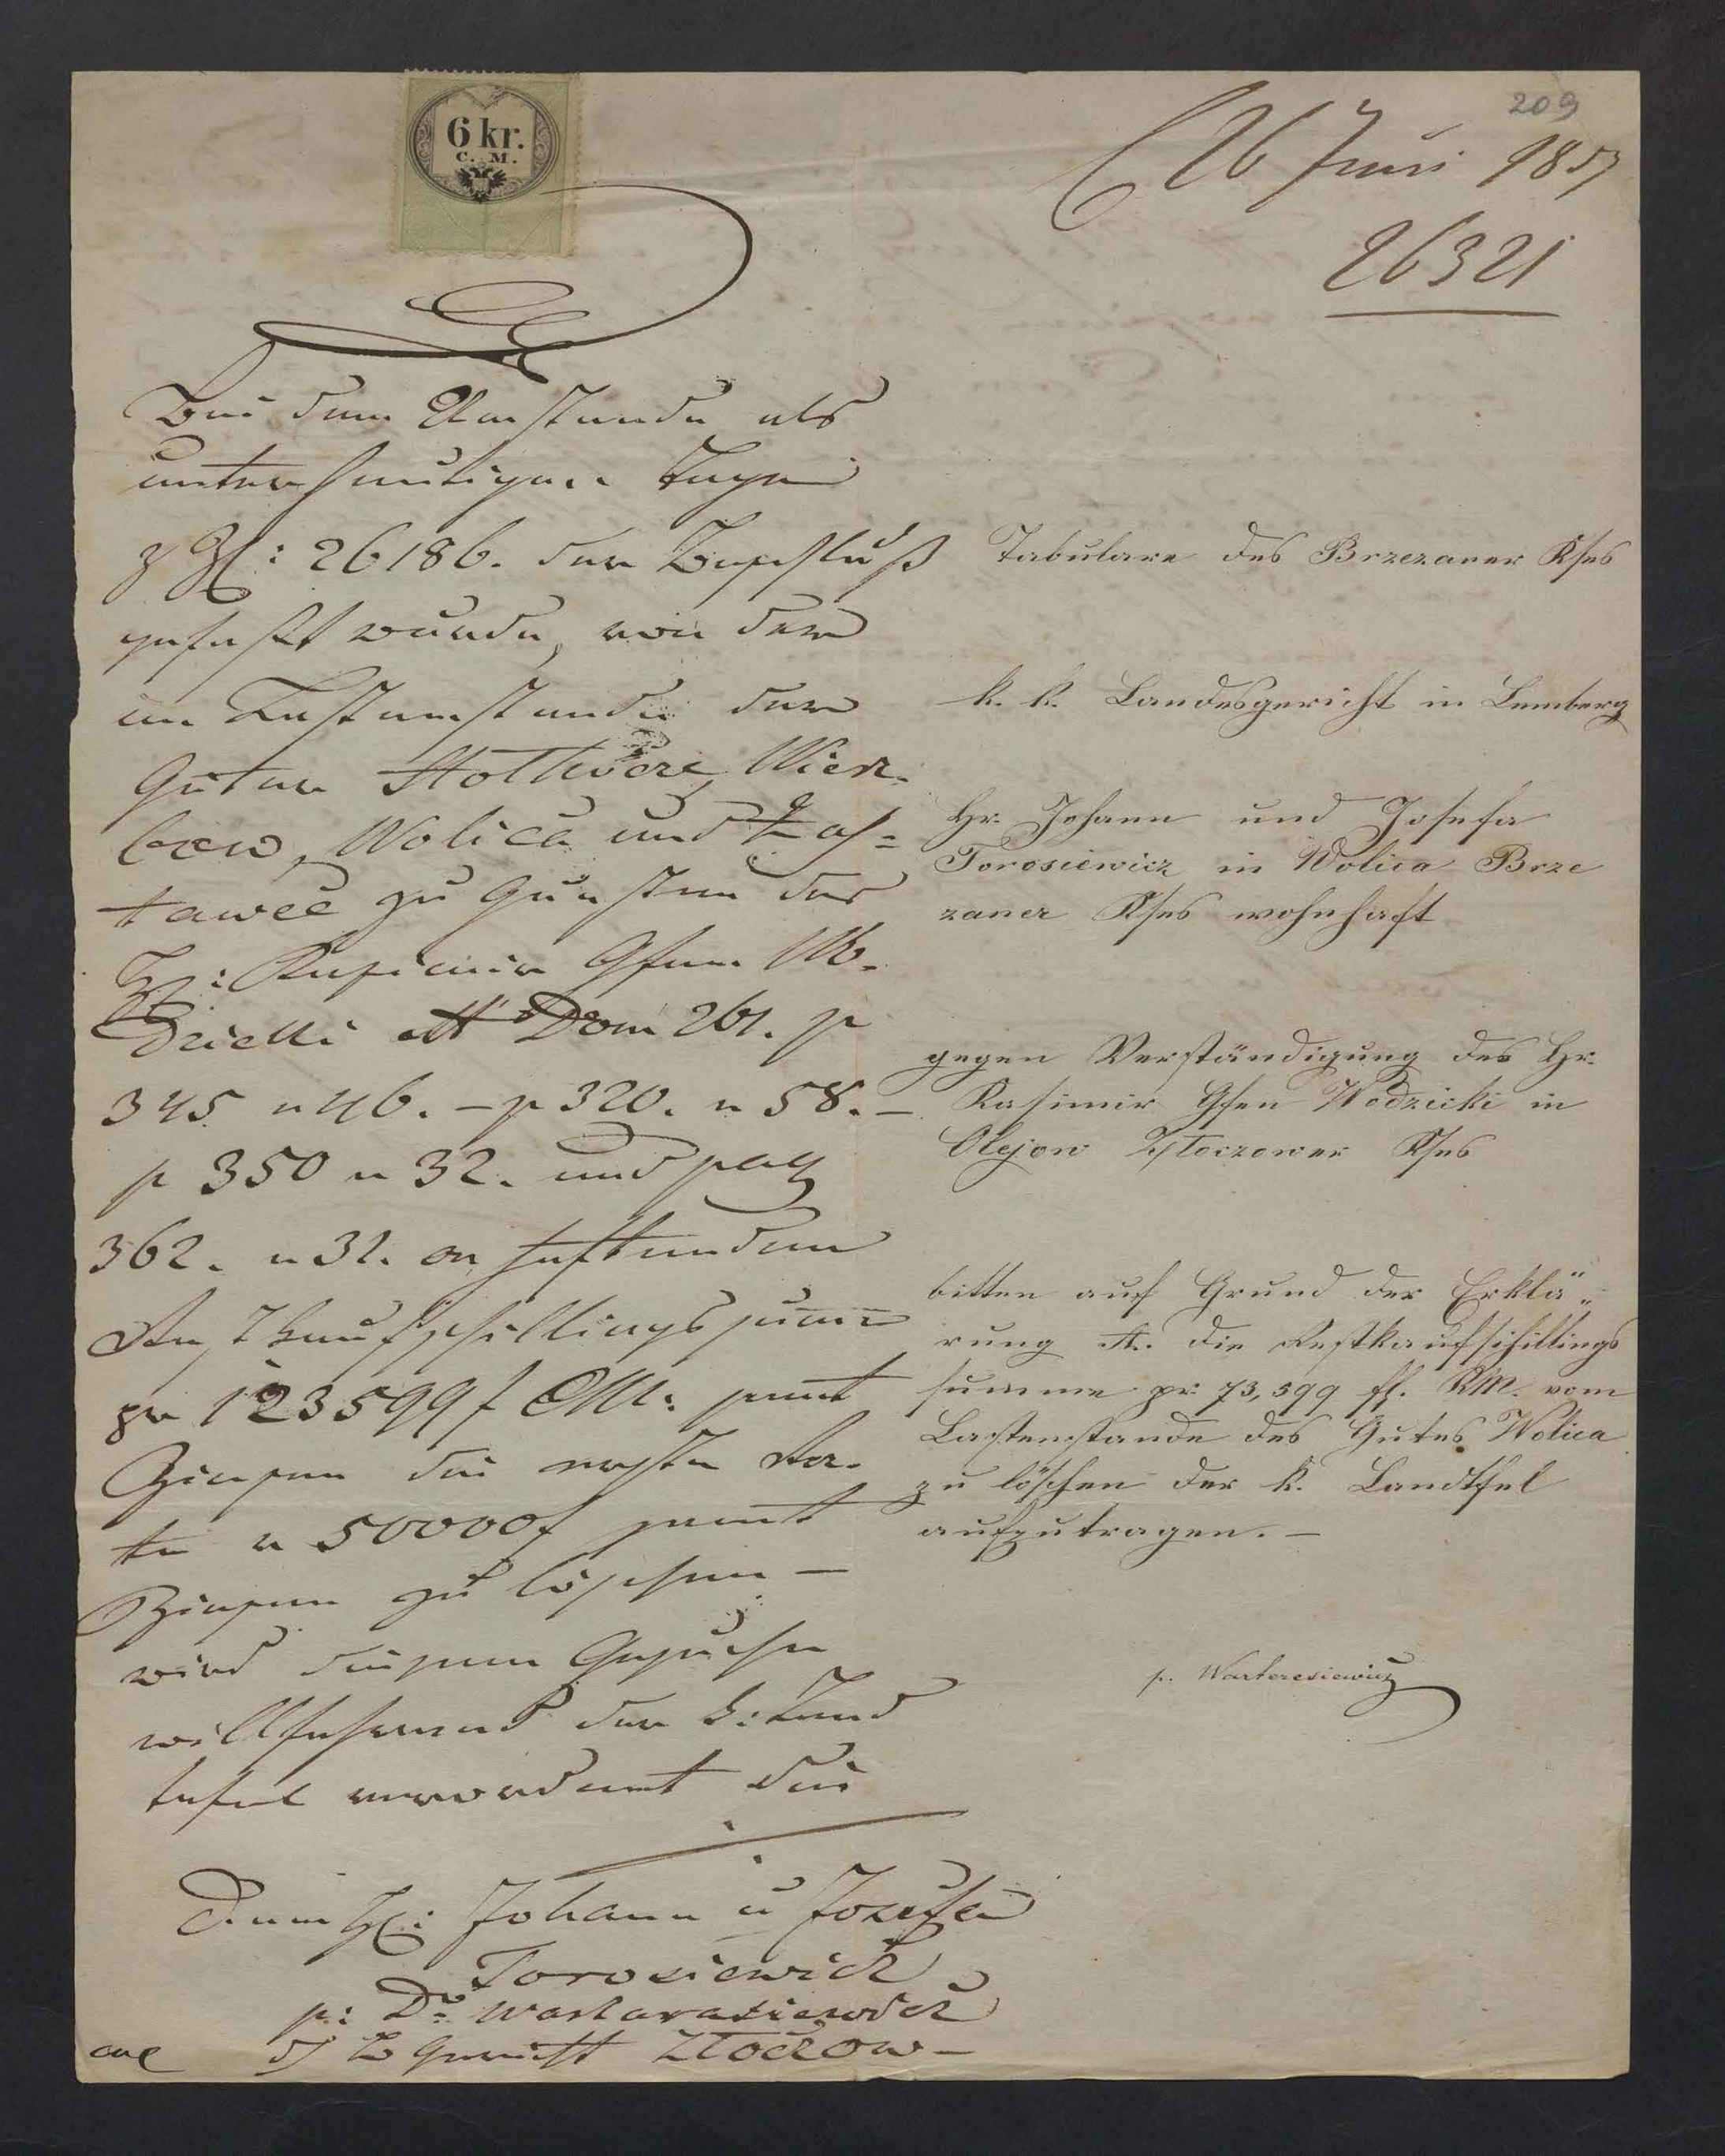 209
6 kr.
C. M.
26 Juni 1857
26321
Bei dem Umstande als
unter heutigem Tage
z Zl: 26186. der Beschluß
gefaßt wurde, von dem
im Lastenstande der
Güter
Wolica und
tawce zu Gunsten des
H: Kasimir Gfen Wo-
dzicki Dom 261. p
345 n 46. – p 320. n 58. –
p 350 n 32. und pag
362. n 31. on haftenden
Restkaufschillingssumme
pr 123599 f CM. samt
Zinsen die erste Ra-
te a 50000 f samt
Zinsen zu löschen –
wird diesem Gesuche
willfahrend der k: Land
tafel verordnet die
Dem H: Johann u Josefa
Torosiewicz
p: Dr Warteresiewicz
Gericht Złoczow –
Tabulare des Brzezaner Kses
k. k. Landesgericht in Lemberg
Hr. Johann und Josefa
Torosiewicz in Wolica Brze
zaner Kses wohnhaft
gegen Verständigung des Hr.
Kasimir Gfen Wodzicki in
Olejow Złoczower Kses
bitten auf Grund der Erklä„
rung A. die Restkaufschillings
summe pr 73,599 fl. KM. vom
Lastenstande des Gutes Wolica
zu löschen der k. Landtfel
aufzutragen. –
p. Warteresiewicz